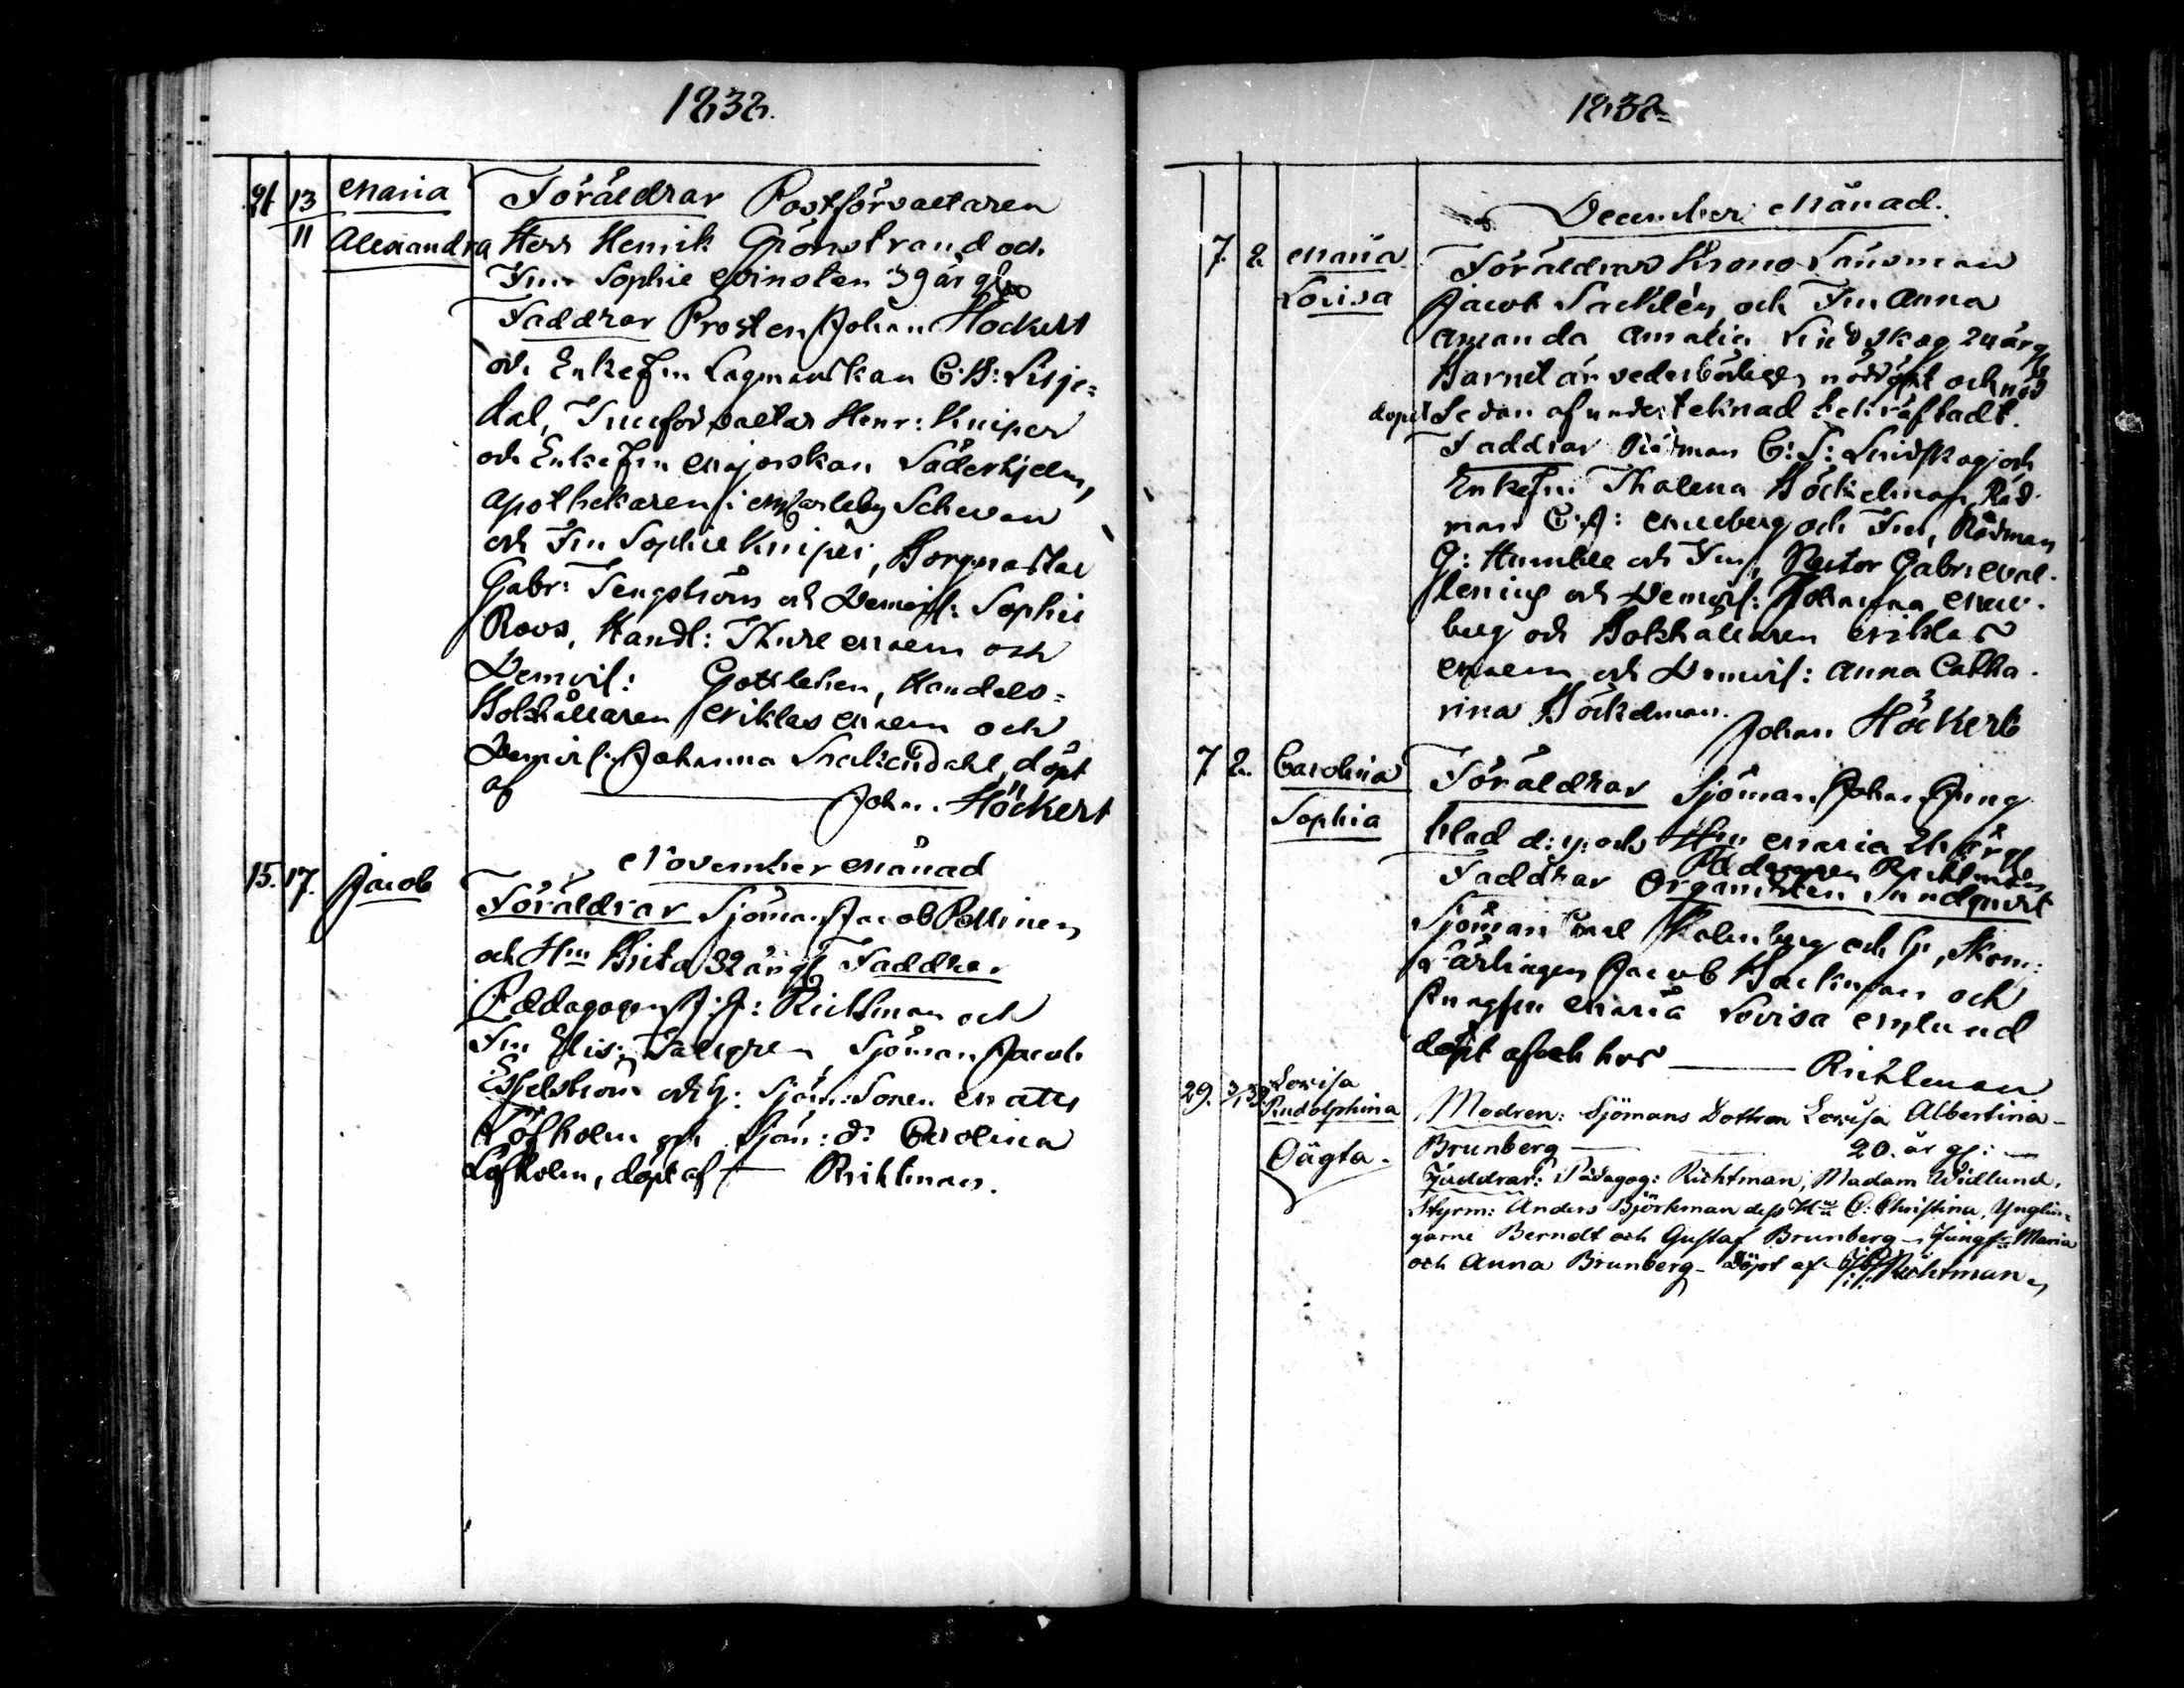 1832.
21 13/11 Maria Föräldrar Postförvaltaren
Alexandra Herr Henrik Grönstrand och
Fru Sophie 39 år gl
Faddrar Prosten Johan Höckert
och Enkefru Lagmanskan C: H: Lilje=
dal, Henr: Kniper
och Enkefru Majorskan Söderhjelm,
Apothekaren i Schevan
och Fru Sophie Kniper, Borgmästar
Gabr: Tengström och Demois: Sophie
Roos, Handl: Thure och
Demois: Gottleben, Handels=
Bokhållaren Niklas och
Demois: Johanna döpt
af Johan Höckert
November Månad
15. 17. Jacob Föräldrar Sjöman Jacob
och Hu Brita 32 år gl Faddrar
Pædagogen J: J: Richtman och
Fru Elis: Sjöman Jacob
och h: Sjöm: Sonen Matts
Löfholm och Sjöm: d: Carolina
Löfholm, döpt af Richtman.
1832
December Månad.
7. 2. Maria Föräldrar Krono Länsman
Lovisa Jacob och Fru Anna
Amanda Amalia Lindskog 24 år gl
Barnet är nöddöpt och nöd
dopet Sedan af undertecknad bekräftadt.
Faddrar Rådman C: S: Lindskog och
Enkefru Thalena Böckelman, Råd
man C: J: och Fru, Rådman
G: Humble och Fru, Rector Gabr
och Demois: Johanna
berg och Bokhållaren Niklas
och Demois: Anna Catha
rina Böckelman.
Johan Höckert
7 2. Carolina Föräldrar Sjöman Johan Ljung
Sophia blad d: y: och Hu Maria år gl
Faddrar Pædagogen Richtman
Organisten Sundqvist
Sjöman Carl Malmberg och h, Skom:
Lärlingen Jacob Backman och
Jungfru Maria Lovisa
döpt af och hos Richtman
29. Lovisa Modren: Sjömans Dottren Lovisa Albertina
Rudolphina Brunberg 20. år gl:
Oägta. Faddrar: Pädagog: Richtman, Madam Widlund,
Styrm: Anders Björkman dess Hu C: Christina, Ynglin=
garne Berndt och Gustaf Brunberg Jungf: Maria
och Anna Brunberg döpt af J: J: Richtman